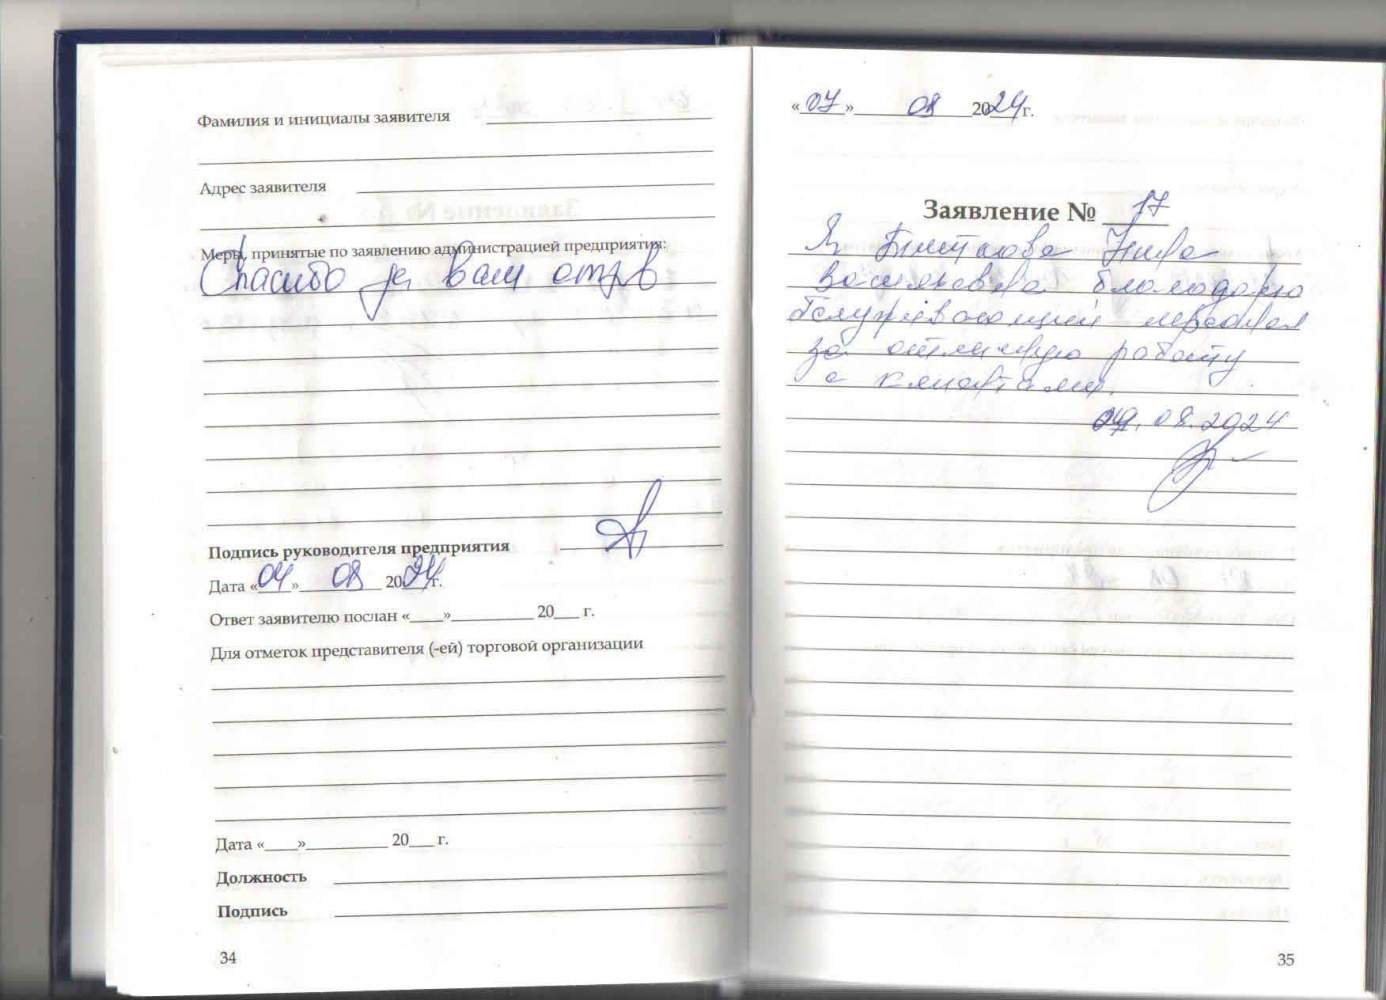 Фамилия и инициалы заявителя
Адрес заявителя
Меры, принятые по заявлению администрацией предприятия:
Спасибо за Ваш отзыв
Подпись руководителя предприятия
Дата «04» 08 2024 г.
Ответ заявителю послан «____»__________ 20___ г.
Для отметок представителя (-ей) торговой организации
Дата «____»__________ 20___ г.
Должность
Подпись
34
«07» 08 2024 г.
Заявление № 17
Я Нина
Васильевна благодарю
обслуживающий персонал
за отличную работу
с клиентами.
08.2024
35